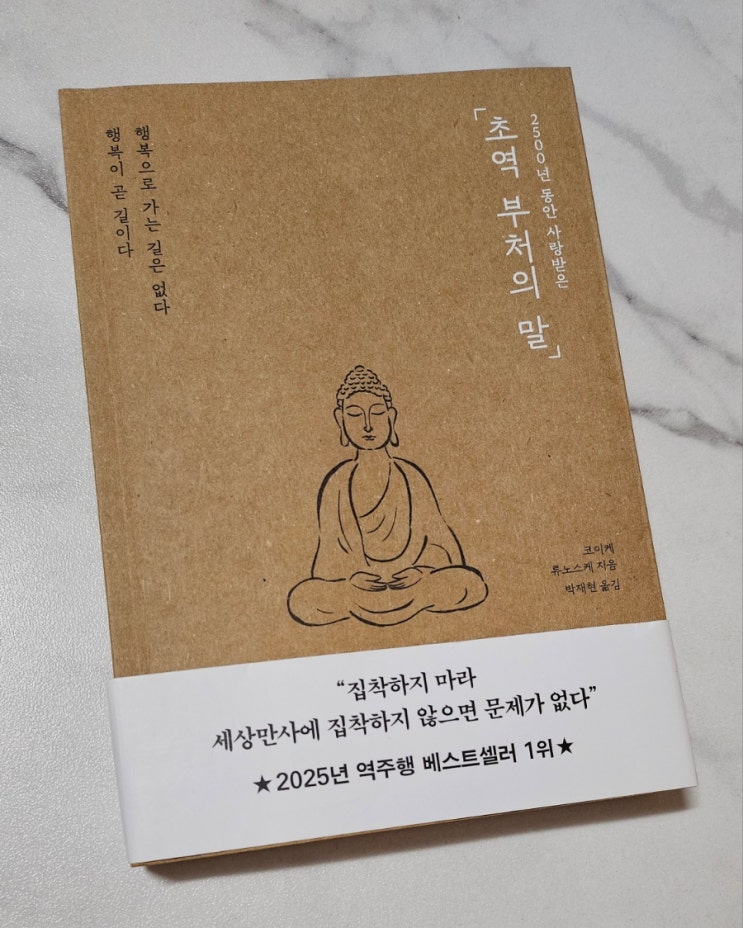 2500년 동안 사랑받은
「초역 부처의 말」
행복으로 가는 길은 없다
행복이 곧 길이다
코이케
류노스케 지음
박재현 옮김
“집착하지 마라
세상만사에 집착하지 않으면 문제가 없다”
★2025년 역주행 베스트셀러 1위★